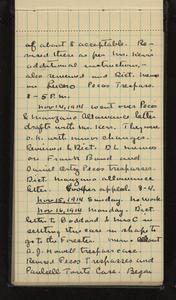 of about 8 acceptable. Re-
vised these as per Mr. Kerr's
additional instructions,
also reviewed and Dict. memo
on Lucero Pecos Trespass.
8 - 5 P.M.
Nov. 14, 1914 went over Pecos
& Manzano Allowance letter
drafts with Mr. Kerr. They were
O.K. with minor changes.
Revised & Dict. D L memos
on Frank Bond and
Daniel Ortiz Pecos trespasses
Dict. Manzano allowance
letter. appeal. 8-4.
Nov. 15, 1914 Sunday. No work.
Nov. 16, 1914 Monday. Dict
letter to Goddard & Mr. C
getting this case in shape to
go to the Forester. Memo about
A.J. Howell trespass case.
Revised Pecos Trespasses and
Case. Began